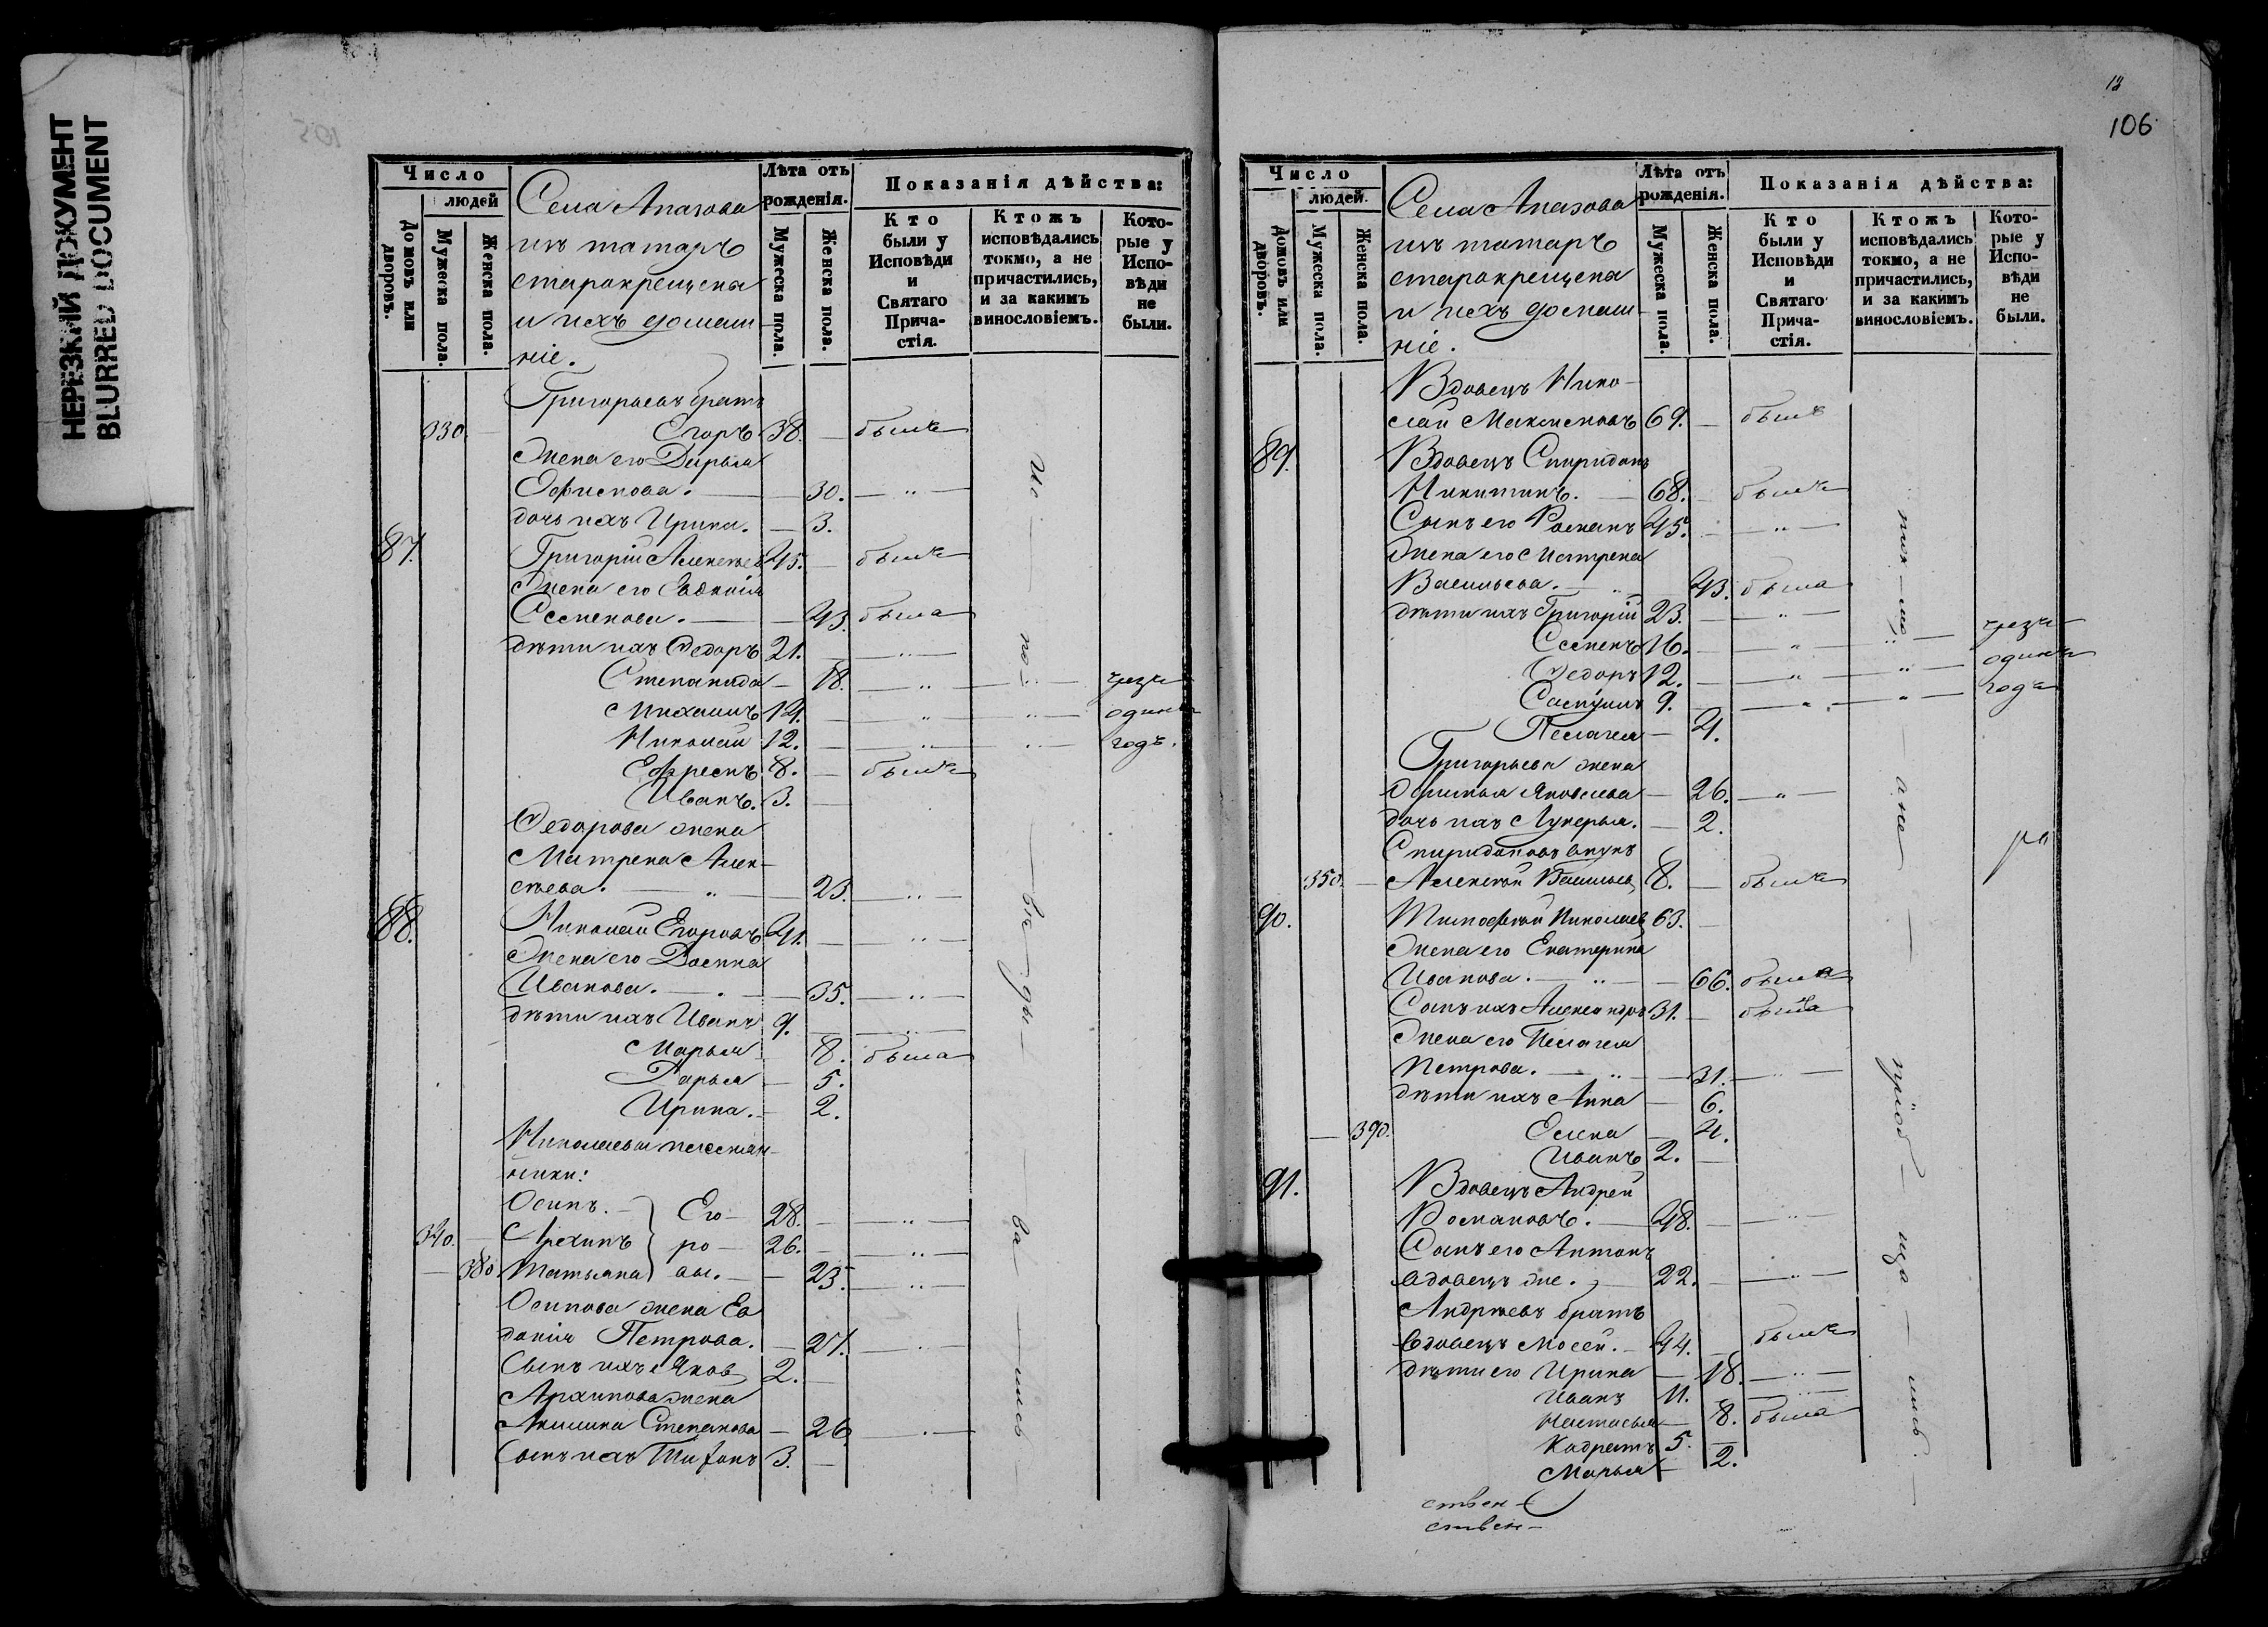 НЕРЕЗКИЙ ДОКУМЕНТ
BLURRED DOCUMENT
Число
людей
Домовъ или дворовъ.
Мужеска пола.
Женска пола.
Села Апазова
изъ татаръ
старокрещена
и ихъ домаш-
ніе.
Лѣта отъ рожденія.
Мужеска пола.
Женска пола.
Показанія дѣйства:
Кто были у Исповѣди и Святаго Прича-стія.
Ктожъ исповѣдались токмо, а не причастились, и за какимъ винословіемъ.
Кото-рые у Испо-вѣди не были.
Григорьевъ братъ
330. Егоръ. 38. — былъ
Жена его Дарья
Ефимова. — 30. — " —
дочь ихъ Ирина. — 3.
87. Григорій Алексѣев 45. — былъ
Жена его Евдокія
Семенова. — 43. была
дѣти ихъ Ѳедоръ 21. — " —
Степанида — 18. — " — чрезъ
Михаилъ 14. — " — " — одинъ
Николай 12. — " — " — годъ.
Ефремъ 8. — былъ
Иванъ. 3. —
Ѳедорова жена
Матрена Алек-
сѣева. — " — 23. — " —
88. Николай Егоровъ 41. — " —
Жена его
Иванова. — 35. — " —
дѣти ихъ Иванъ 9. — " —
Марья 8. была
Дарья — 5.
Ирина. — 2.
Николаевы племян-
ники:
Осипъ. — Его- 28. — " —
340. Архипъ ро- 26. — " —
380 Татьяна вы. — 25. — " —
Осипова жена Ев
докія Петрова. — 27. — " —
Сынъ ихъ Яков 2. —
Архипова жена
Акилина Степанова — 26. — " —
Сынъ ихъ 3. —
13
106
Число
людей.
Домовъ или дворовъ.
Мужеска пола.
Женска пола.
Села Апазова
изъ татаръ
старокрещена
и ихъ домаш-
ніе.
Лѣта отъ рожденія.
Мужеска пола.
Женска пола.
Показанія дѣйства:
Кто были у Исповѣди и Святаго Прича-стія.
Ктожъ исповѣдались токмо, а не причастились, и за какимъ винословіемъ.
Кото-рые у Испо-вѣди не были.
Вдовецъ Нико-
лай Максимовъ 69. — былъ
89. Вдовецъ Спиридонъ
Никитинъ. — 68. — былъ
Сынъ его Романъ 45. — " —
Жена его Матрена
Васильева. — 43. была
дѣти ихъ Григорій 23. — " —
Семенъ 16. — " — " — чрезъ
Ѳедоръ 12. — " — " — одинъ
9. — " — " — годъ
Пелагея — 4.
Григорьева жена
Яковлева — 26. — " —
дочь ихъ Лукерья. — 2.
Спиридоновъ внукъ
350. — Алексѣй Васильев 8. — былъ
90. Тимоѳей Николаев 63. —
Жена его Екатерина
Иванова. — " — 66. была
Сынъ ихъ Александръ 31. — былъ
Жена его Пелагея
Петрова. — " — 31. — " —
дѣти ихъ Анна — 6.
390. Елена — 4.
Иванъ 2. —
91. Вдовецъ Андрей
Романовъ. — 48. — " —
Сынъ его Антонъ
вдовецъ же. — 22. — " —
Андреевъ братъ
вдовецъ Мосей. — 44. — былъ
дѣти его Ирина — 18. — " —
Иванъ 11. — " —
Настасья — 8. была
Кодратъ 5. —
Марья — 2.
ствен-
ствен-